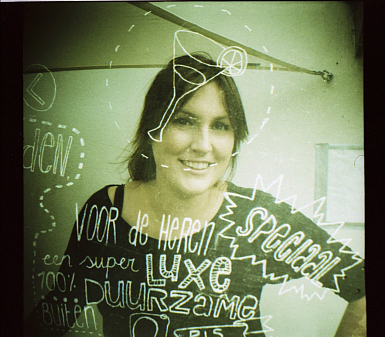 den
VOOR de HEREN
SPECIAAL
een super LUXE
100% DUURZAME
BUITEN
PIS